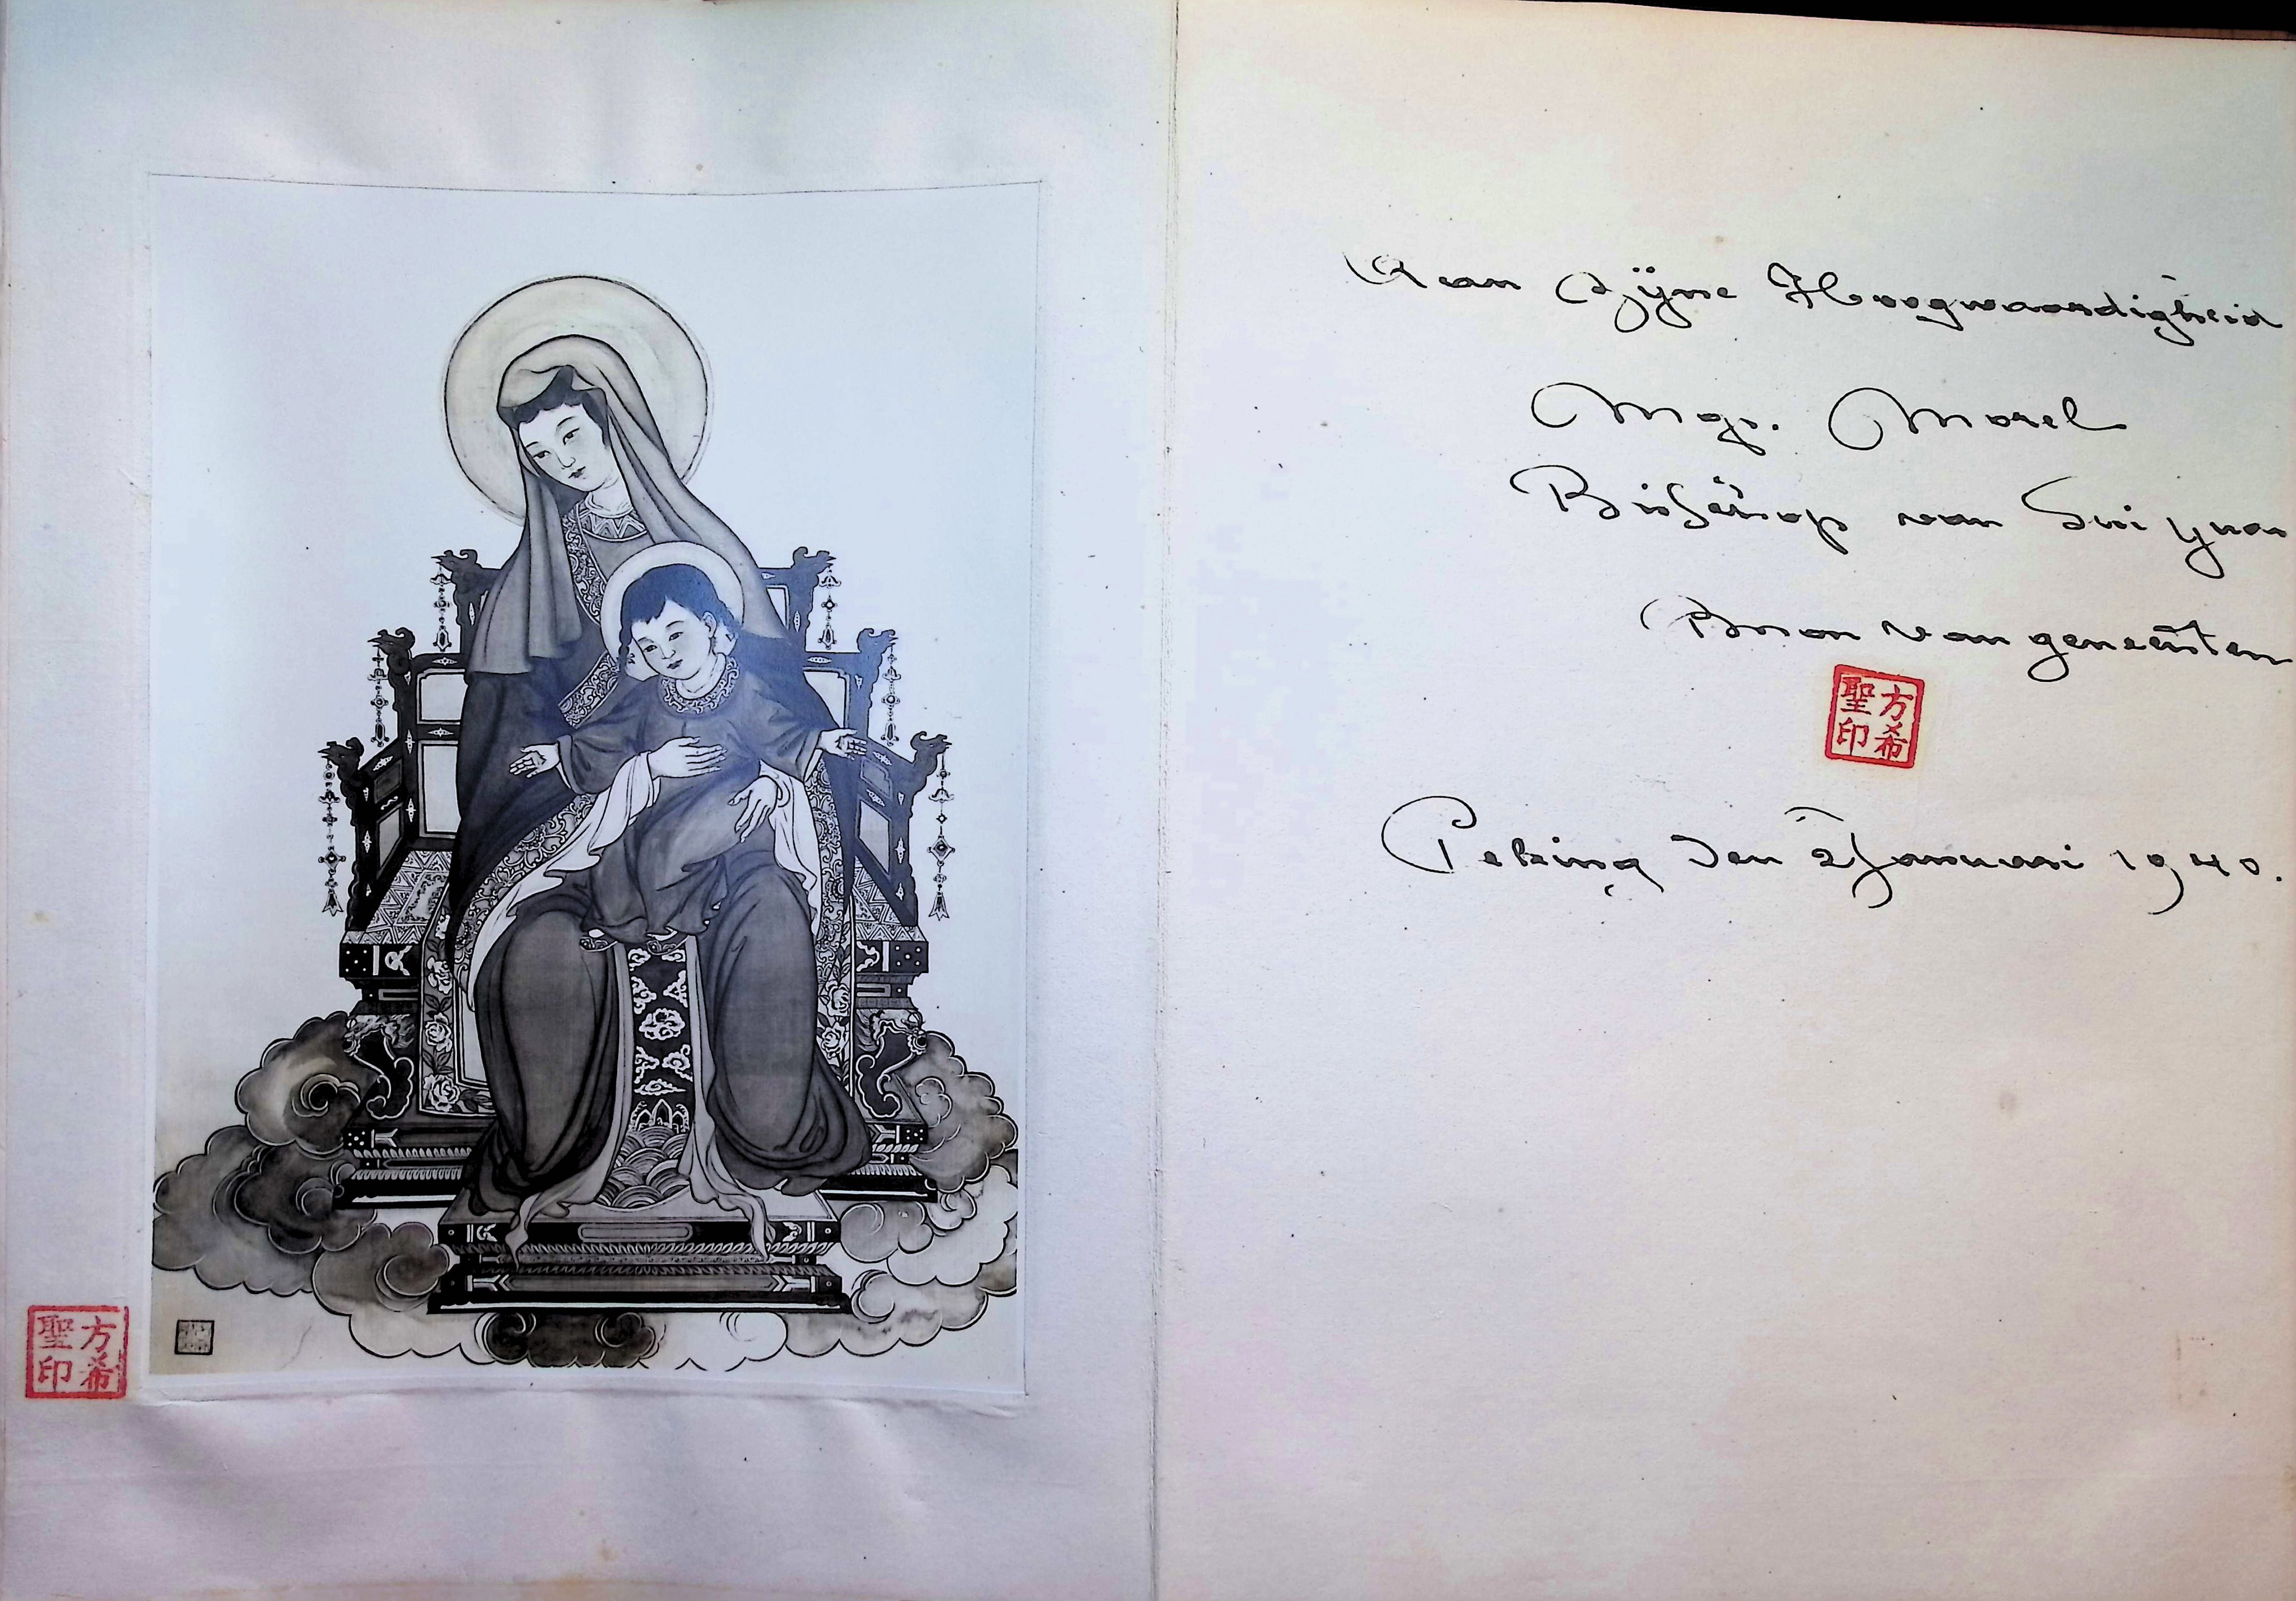 方希
聖印
Aan Zijne Hoogwaardigheid
Mgr. Morel
Bisschop van Suiyuan
Bron van genechten
方希
聖印
Peking den 2 Januari 1940.